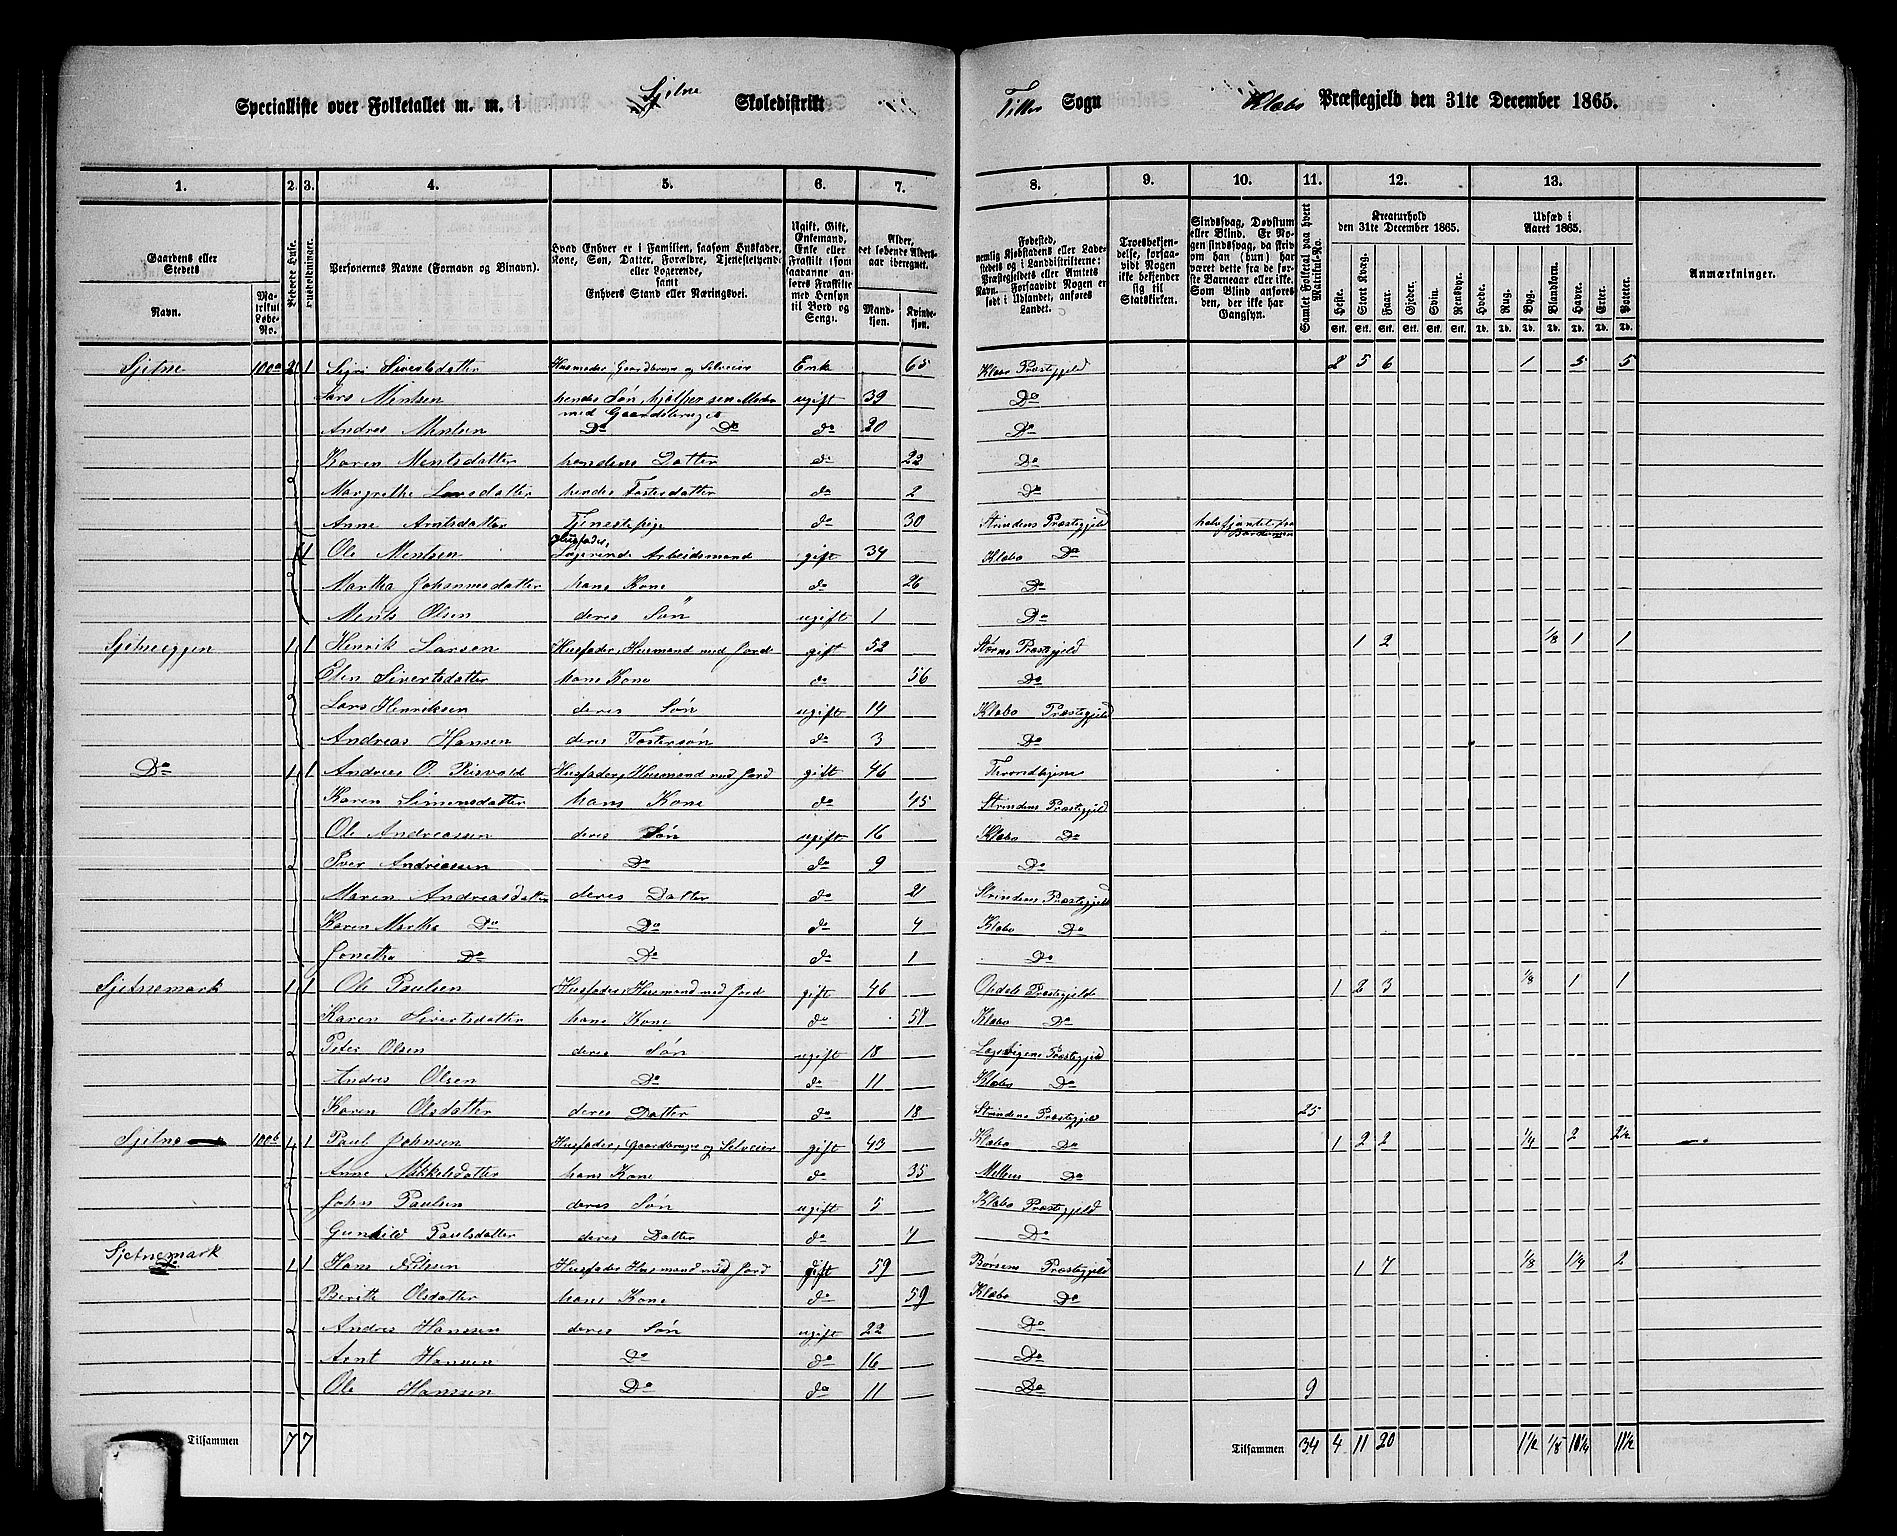 Specialliste over Folketallet m. m. i Sjetne Skoledistrikt Tiller Sogn Klæbo Præstegjeld den 31te December 1865.
1. 2. 3. 4. 5. 6. 7. 8. 9. 10. 11. 12. 13.
Gaardens eller Stedets
Navn.
Matrikul Løbe-No.
Beboede Huse.
Husholdninger.
Personernes Navne (Fornavn og Binavn).
Hvad Enhver er i Familien, saasom Husfader, Kone, Søn, Datter, Forældre, Tjenestetyende eller Logerende, samt Enhvers Stand eller Næringsvei.
Ugift, Gift, Enkemand, Enke eller Fraskilt (saaadanne anføres Fraskilte med Hensyn til Bord og Seng).
Alder, det løbende Alders-aar iberegnet.
Mand-kjøn. Kvinde-kjøn.
Fødested, nemlig Kjøbstadens eller Ladestedets og i Landdistrikterne: Præstegjeldets eller Amtets Navn. Forsaavidt Nogen er født i Udlandet, anføres Landet.
Troesbekjendelse, forsaavidt Nogen ikke bekjender sig til Statskirken.
Sindssvag, Døvstum eller Blind. Er Nogen sindssvag, da skrives om han (hun) har været dette fra de første Barneaar eller ikke. Som Blind anføres den, der ikke har Gangsyn.
Samlet Folketal paa hvert Matrikul-No.
Kreaturhold den 31te December 1865.
Heste. Stort Kvæg. Faar. Gjeder. Svin. Rensdyr.
Udsæd i Aaret 1865.
Hvede. Rug. Byg. Blandkorn. Havre. Erter. Poteter.
Stk. Stk. Stk. Stk. Stk. Stk. Td. Td. Td. Td. Td. Td. Td.
Anmærkninger.
Sjetne 100a 2 1 Sigri Sivertsdatter Husmoder Gaardbruger og Selveier Enke 65 Klæbo Præstegjeld 2 5 6 1 5 5
Lars Mentsen hendes Søn, hjelper sin Moder ugift 39 Do
med Gaardsbruget
Andres Mentsen Do Do do 20 Do
Karen Mentsdatter hendes Datter do 22 Do
Margrethe Larsdatter hendes Fosterdatter do 2 Do
Anne Arntsdatter Tjenestepige do 30 Strindens Præstegjeld
1 Ole Mentsen Husfader, Logerende Arbeidsmand gift 34 Klæbo Do
Martha Johannesdatter hans Kone do 26 Do
Ments Olsen deres Søn ugift 1 Do
Sjetneeggen 1 1 Henrik Larsen Husfader, Husmand med Jord gift 52 Størens Præstegjeld 1 2 1/8 1 1
Elen Sivertsdatter hans Kone do 56 Do
Lars Henriksen deres Søn ugift 14 Klæbo Præstegjeld
Andreas Hansen deres Fostersøn do 3 Do
Do 1 1 Andreas O. Risvold Husfader, Husmand med Jord gift 46 Throndhjem
Karen Simensdatter hans Kone do 45 Strindens Præstegjeld
Ole Andreassen deres Søn ugift 16 Klæbo Do
Iver Andreassen Do do 9 Do
Maren Andreasdatter deres Datter do 21 Strindens Præstegjeld
Karen Martha Do Do do 4 Klæbo Do
Jonetha Do Do do 1 Do
Sjetnemark 1 1 Ole Paulsen Husfader, Husmand med Jord gift 46 Opdals Præstegjeld 1 2 3 1/8 1 1
Karen Sivertsdatter hans Kone do 57 Klæbo Do
Peter Olsen deres Søn ugift 18 Præstegjeld
Andres Olsen Do do 11 Klæbo Do
Karen Olsdatter deres Datter do 18 Strindens Præstegjeld 25
Sjetne 100b 1 1 Paul Johnsen Husfader, Gaardbruger og Selveier gift 43 Klæbo Do 1 2 2 1/4 2 2 1/2
Anne Mikkelsdatter hans Kone do 35 Melhus Do
John Paulsen deres Søn ugift 5 Klæbo Præstegjeld
Gunhild Paulsdatter deres Datter do 4 Do
Sjetnemark 1 1 Hans Nilsen Husfader Husmand med Jord gift 59 Børsens Præstegjeld 1 7 1/8 1 1/4 2
Berith Olsdatter hans Kone do 59 Klæbo Do
Andres Hanssen deres Søn ugift 22 Do
Arnt Hansen Do do 16 Do
Ole Hanssen Do do 11 Do 9
Tilsammen 7 7 Tilsammen 34 4 11 20 1 1/2 1/8 10 1/4 11 1/2